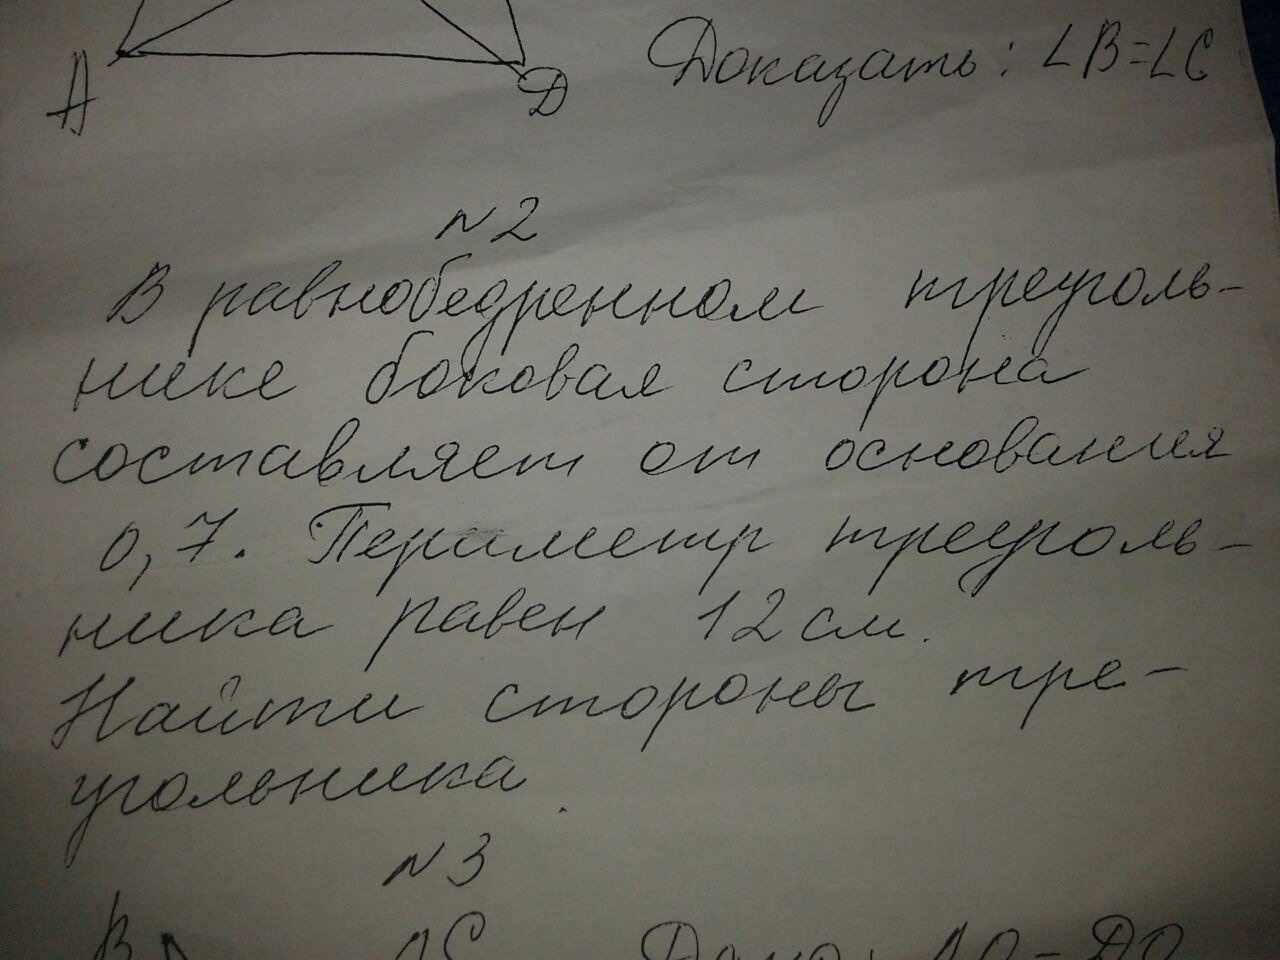 A
D
Доказать: ∠B=∠C
N2
В равнобедренном треуголь-
нике боковая сторона
составляет от основания
0,7. Периметр треуголь-
ника равен 12 см.
Найти стороны тре-
угольника.
N3
B
C
Дано: AO=DO